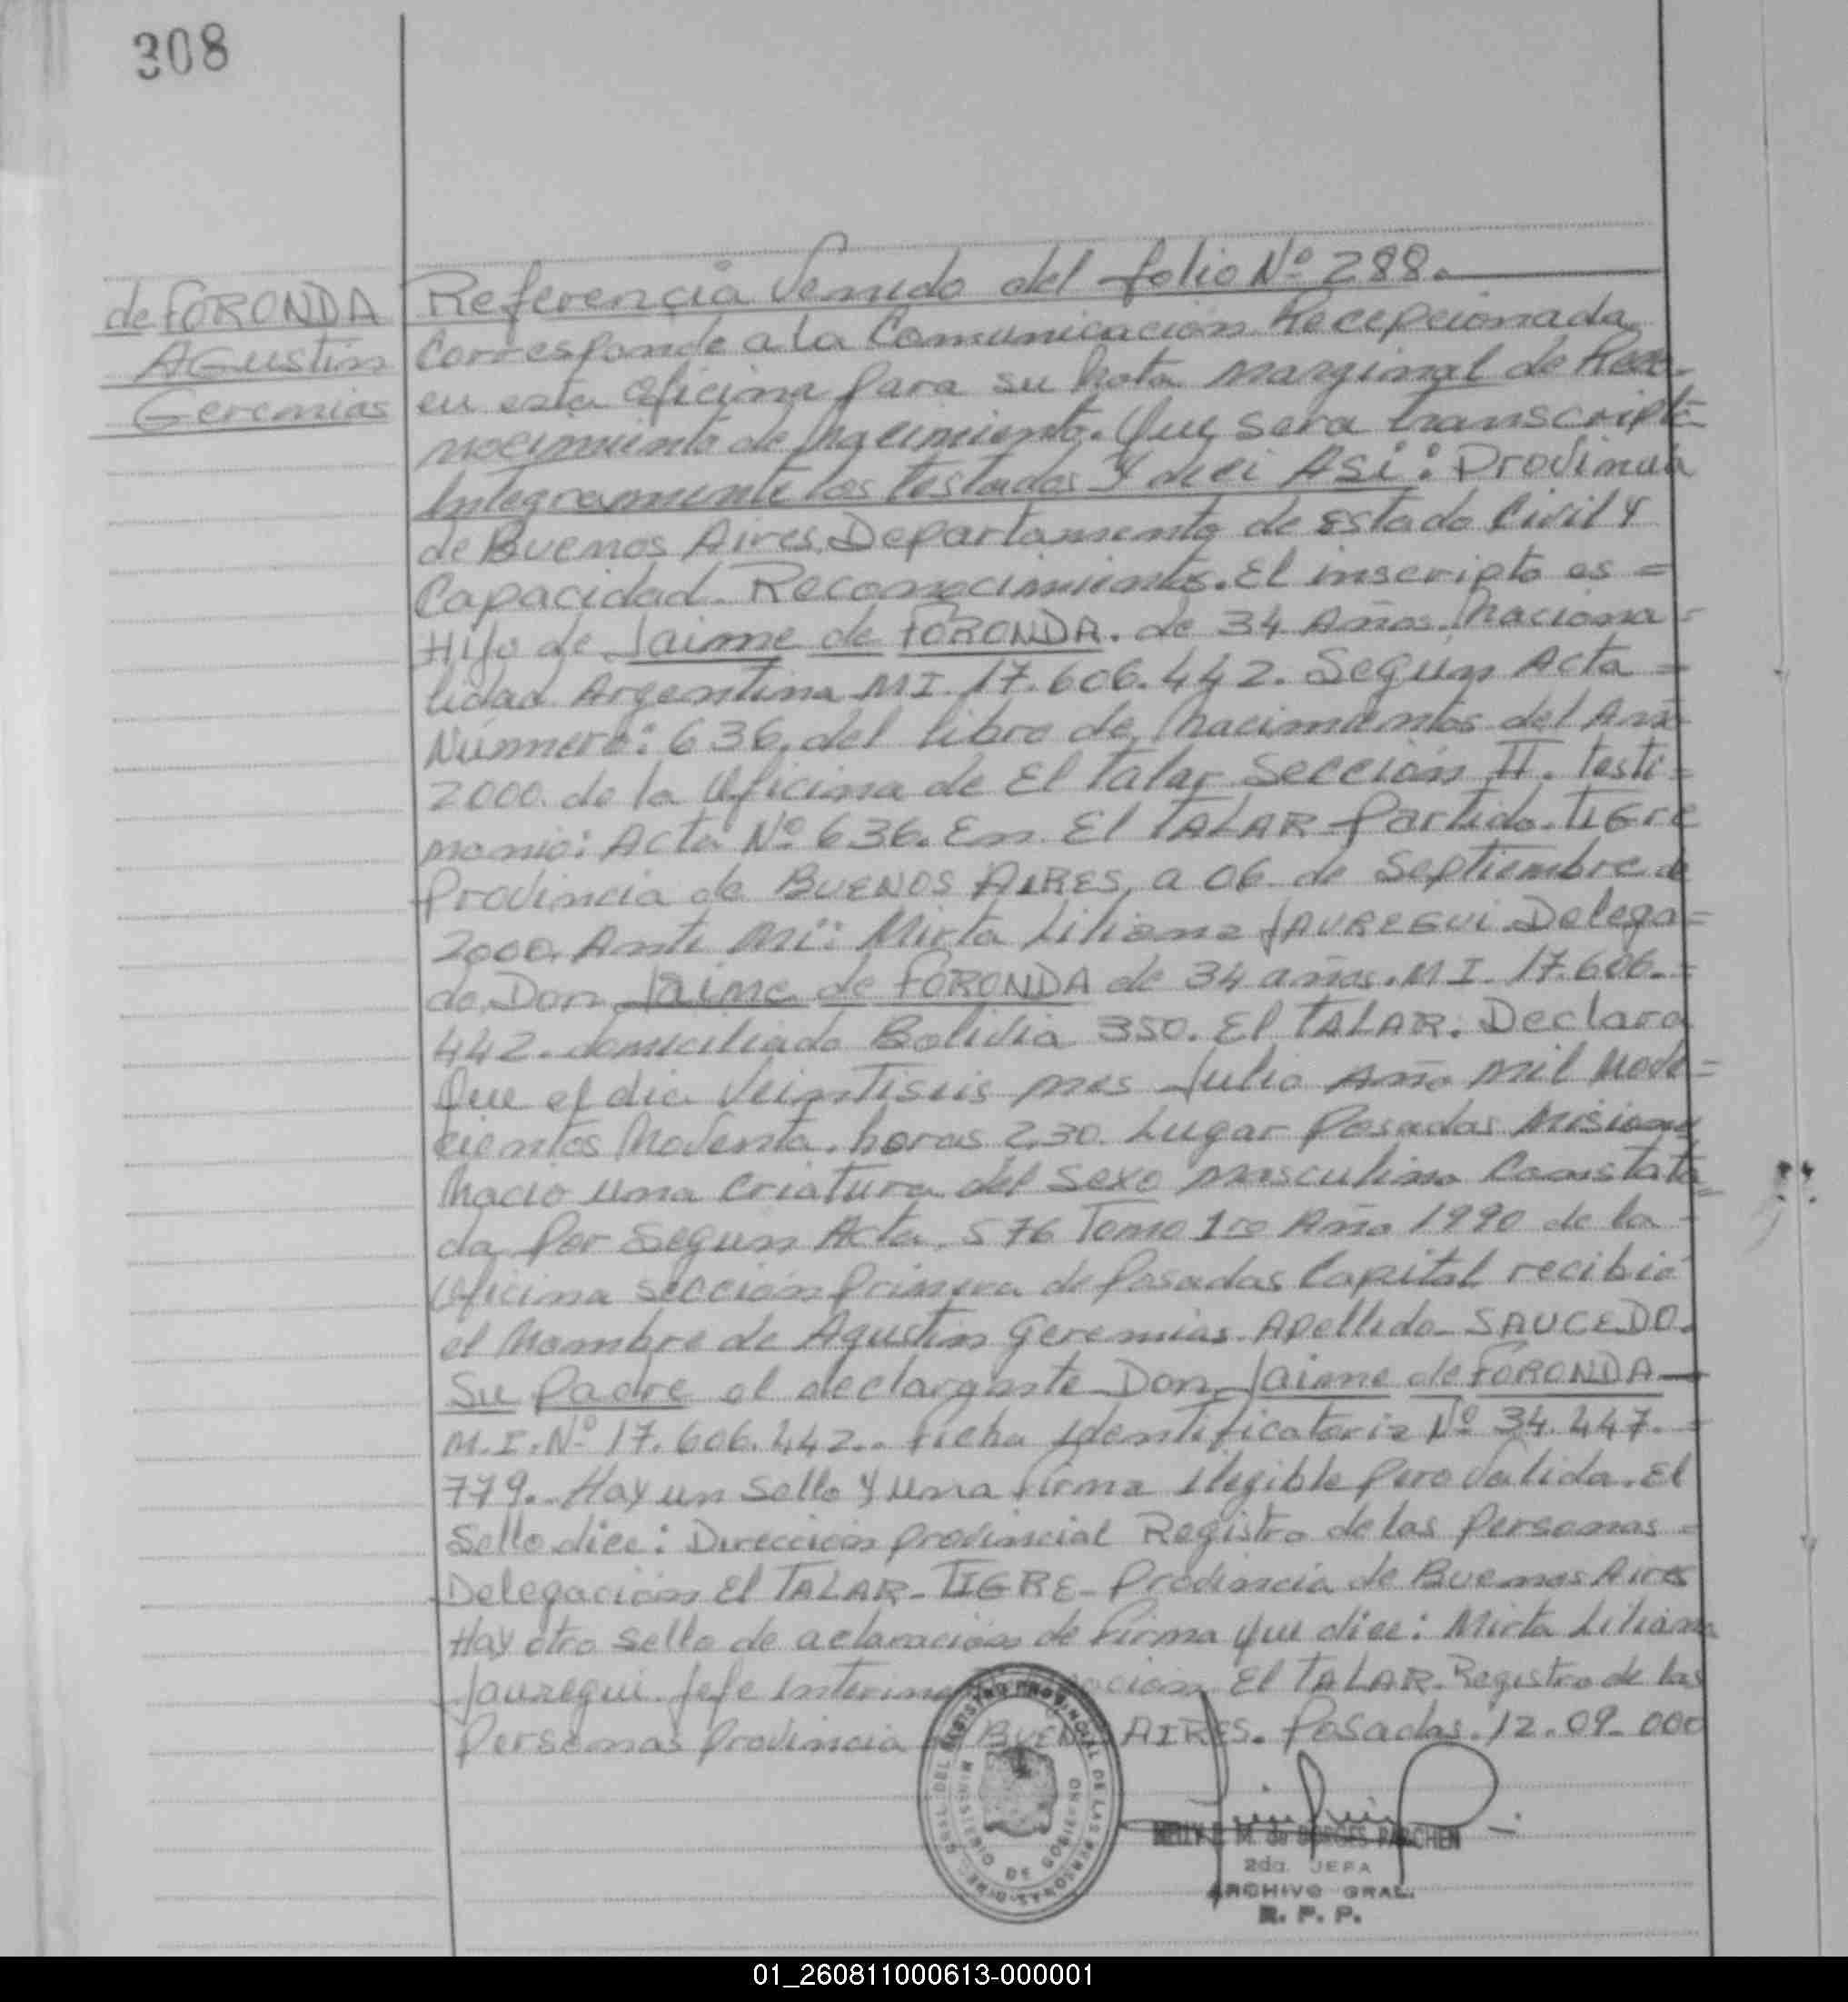 308
de FORONDA
Agustín
Geremias
Referencia Venido del folio Nº 288.
Corresponde a la Comunicación Recepcionada
en esta Oficina para su Nota marginal de Reco-
nocimiento de Nacimiento. Que sera transcripto
Integramente los testados Y dice Asi: Provincia
de Buenos Aires. Departamento de Estado Civil Y
Capacidad. Reconocimientos. El inscripto es =
Hijo de Jaime de FORONDA. de 34 Años. Naciona=
lidad Argentina MI. 17.606.442. Según Acta =
Número: 636, del libro de Nacimientos del Año
2000. de la Oficina de El Talar Sección II. testi=
monio: Acta Nº 636. En El TALAR Partido. TIGre
Provincia de BUENOS AIRES, a 06 de Septiembre de
2000. Ante Mi: Mirta Liliana JAUREGUI Delega=
do, Don Jaime de FORONDA de 34 años. M I. 17.606.=
442. domiciliado Bolivia 350. El TALAR. Declara
Que el dia Veintiseis mes Julio Año mil Nove=
cientos Noventa. horas 2,30. Lugar Posadas Misiones
Nacio una criatura del sexo masculino Constata=
da por Segun Acta 576 Tomo 1ro Año 1990 de la =
Oficina sección Primera de Posadas Capital recibió
el Nombre de Agustin Geremias. Apellido SAUCEDO.
Su Padre el declarante Don Jaime de FORONDA
M.I. Nº 17.606.442.. ficha Identificatoria Nº 34.447.=
779.. Hay un Sello y una firma Ilegible pero valida. El
Sello dice: Dirección provincial Registro de las Personas =
Delegación El TALAR-TIGRE-Provincia de Buenos Aires
Hay otro sello de aclaración de firma que dice: Mirta Liliana
Jauregui. Jefe Interino El TALAR. Registro de las
Personas Provincia BUENO AIRES. Posadas. 12.09.000
REGISTRO PROVINCIAL DE LAS PERSONAS
MINISTERIO DE GOBIERNO
NELLY E. M. de BORGES PARCHEN
2da. JEFA
ARCHIVO GRAL.
R. P. P.
01_260811000613-000001